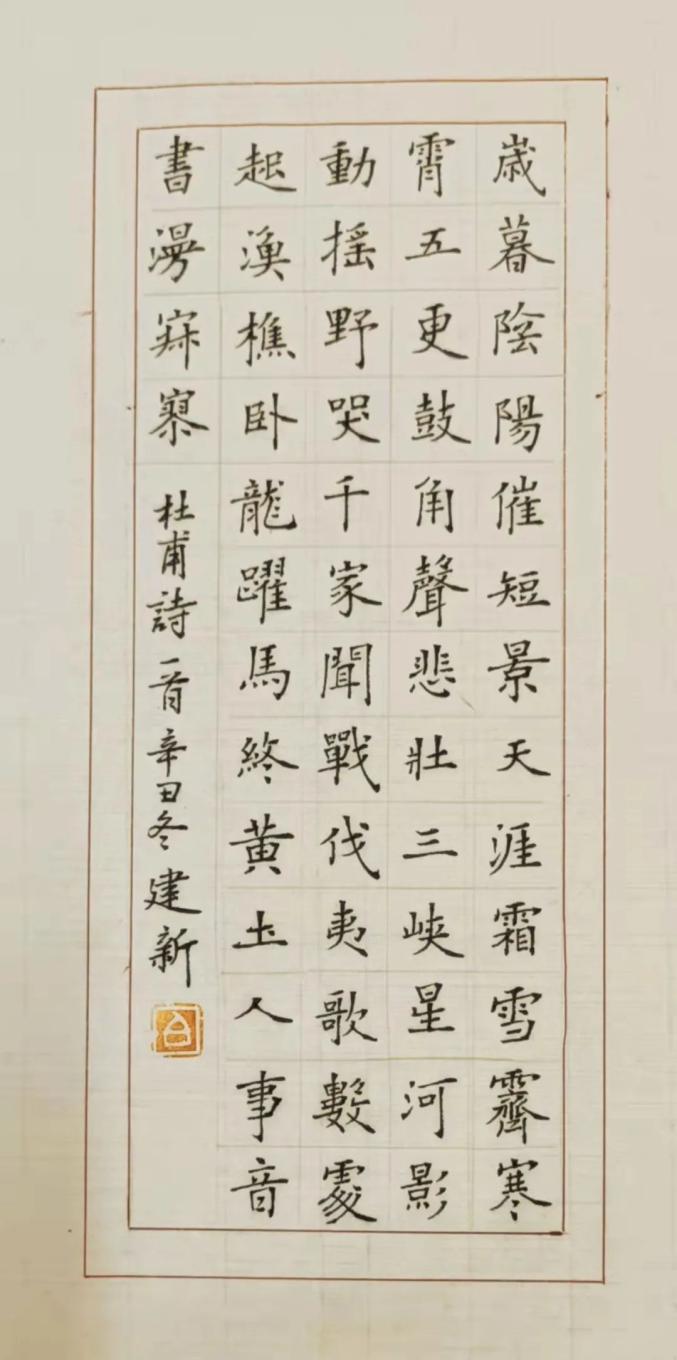 歲暮陰陽催短景天涯霜雪霽寒
霄五更鼓角聲悲壯三峽星河影
動搖野哭千家聞戰伐夷歌數處
起漁樵卧龍躍馬終黃土人事音
書漫寂寥 杜甫詩一首辛丑冬建新